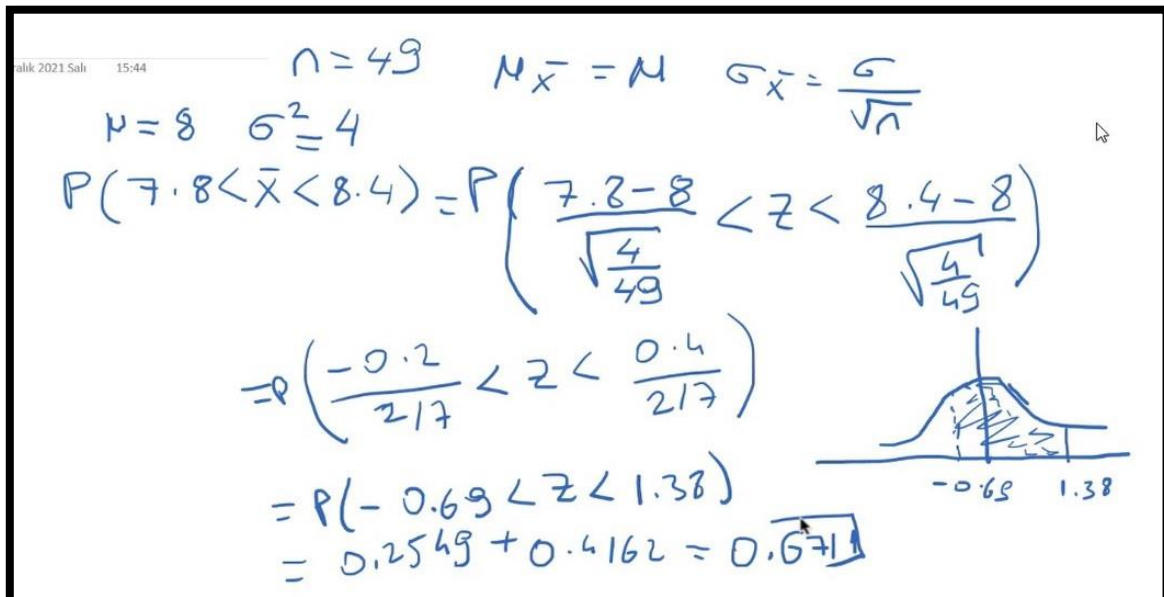 ralık 2021 Salı 15:44
n = 49 μx̄ = μ σx̄ = σ/√n
μ = 8 σ² = 4
P(7.8 < x̄ < 8.4) = P( (7.8-8)/√(4/49) < Z < (8.4-8)/√(4/49) )
= P( -0.2/(2/7) < Z < 0.4/(2/7) )
= P(-0.69 < Z < 1.38)
-0.69 1.38
= 0.2549 + 0.4162 = 0.6711